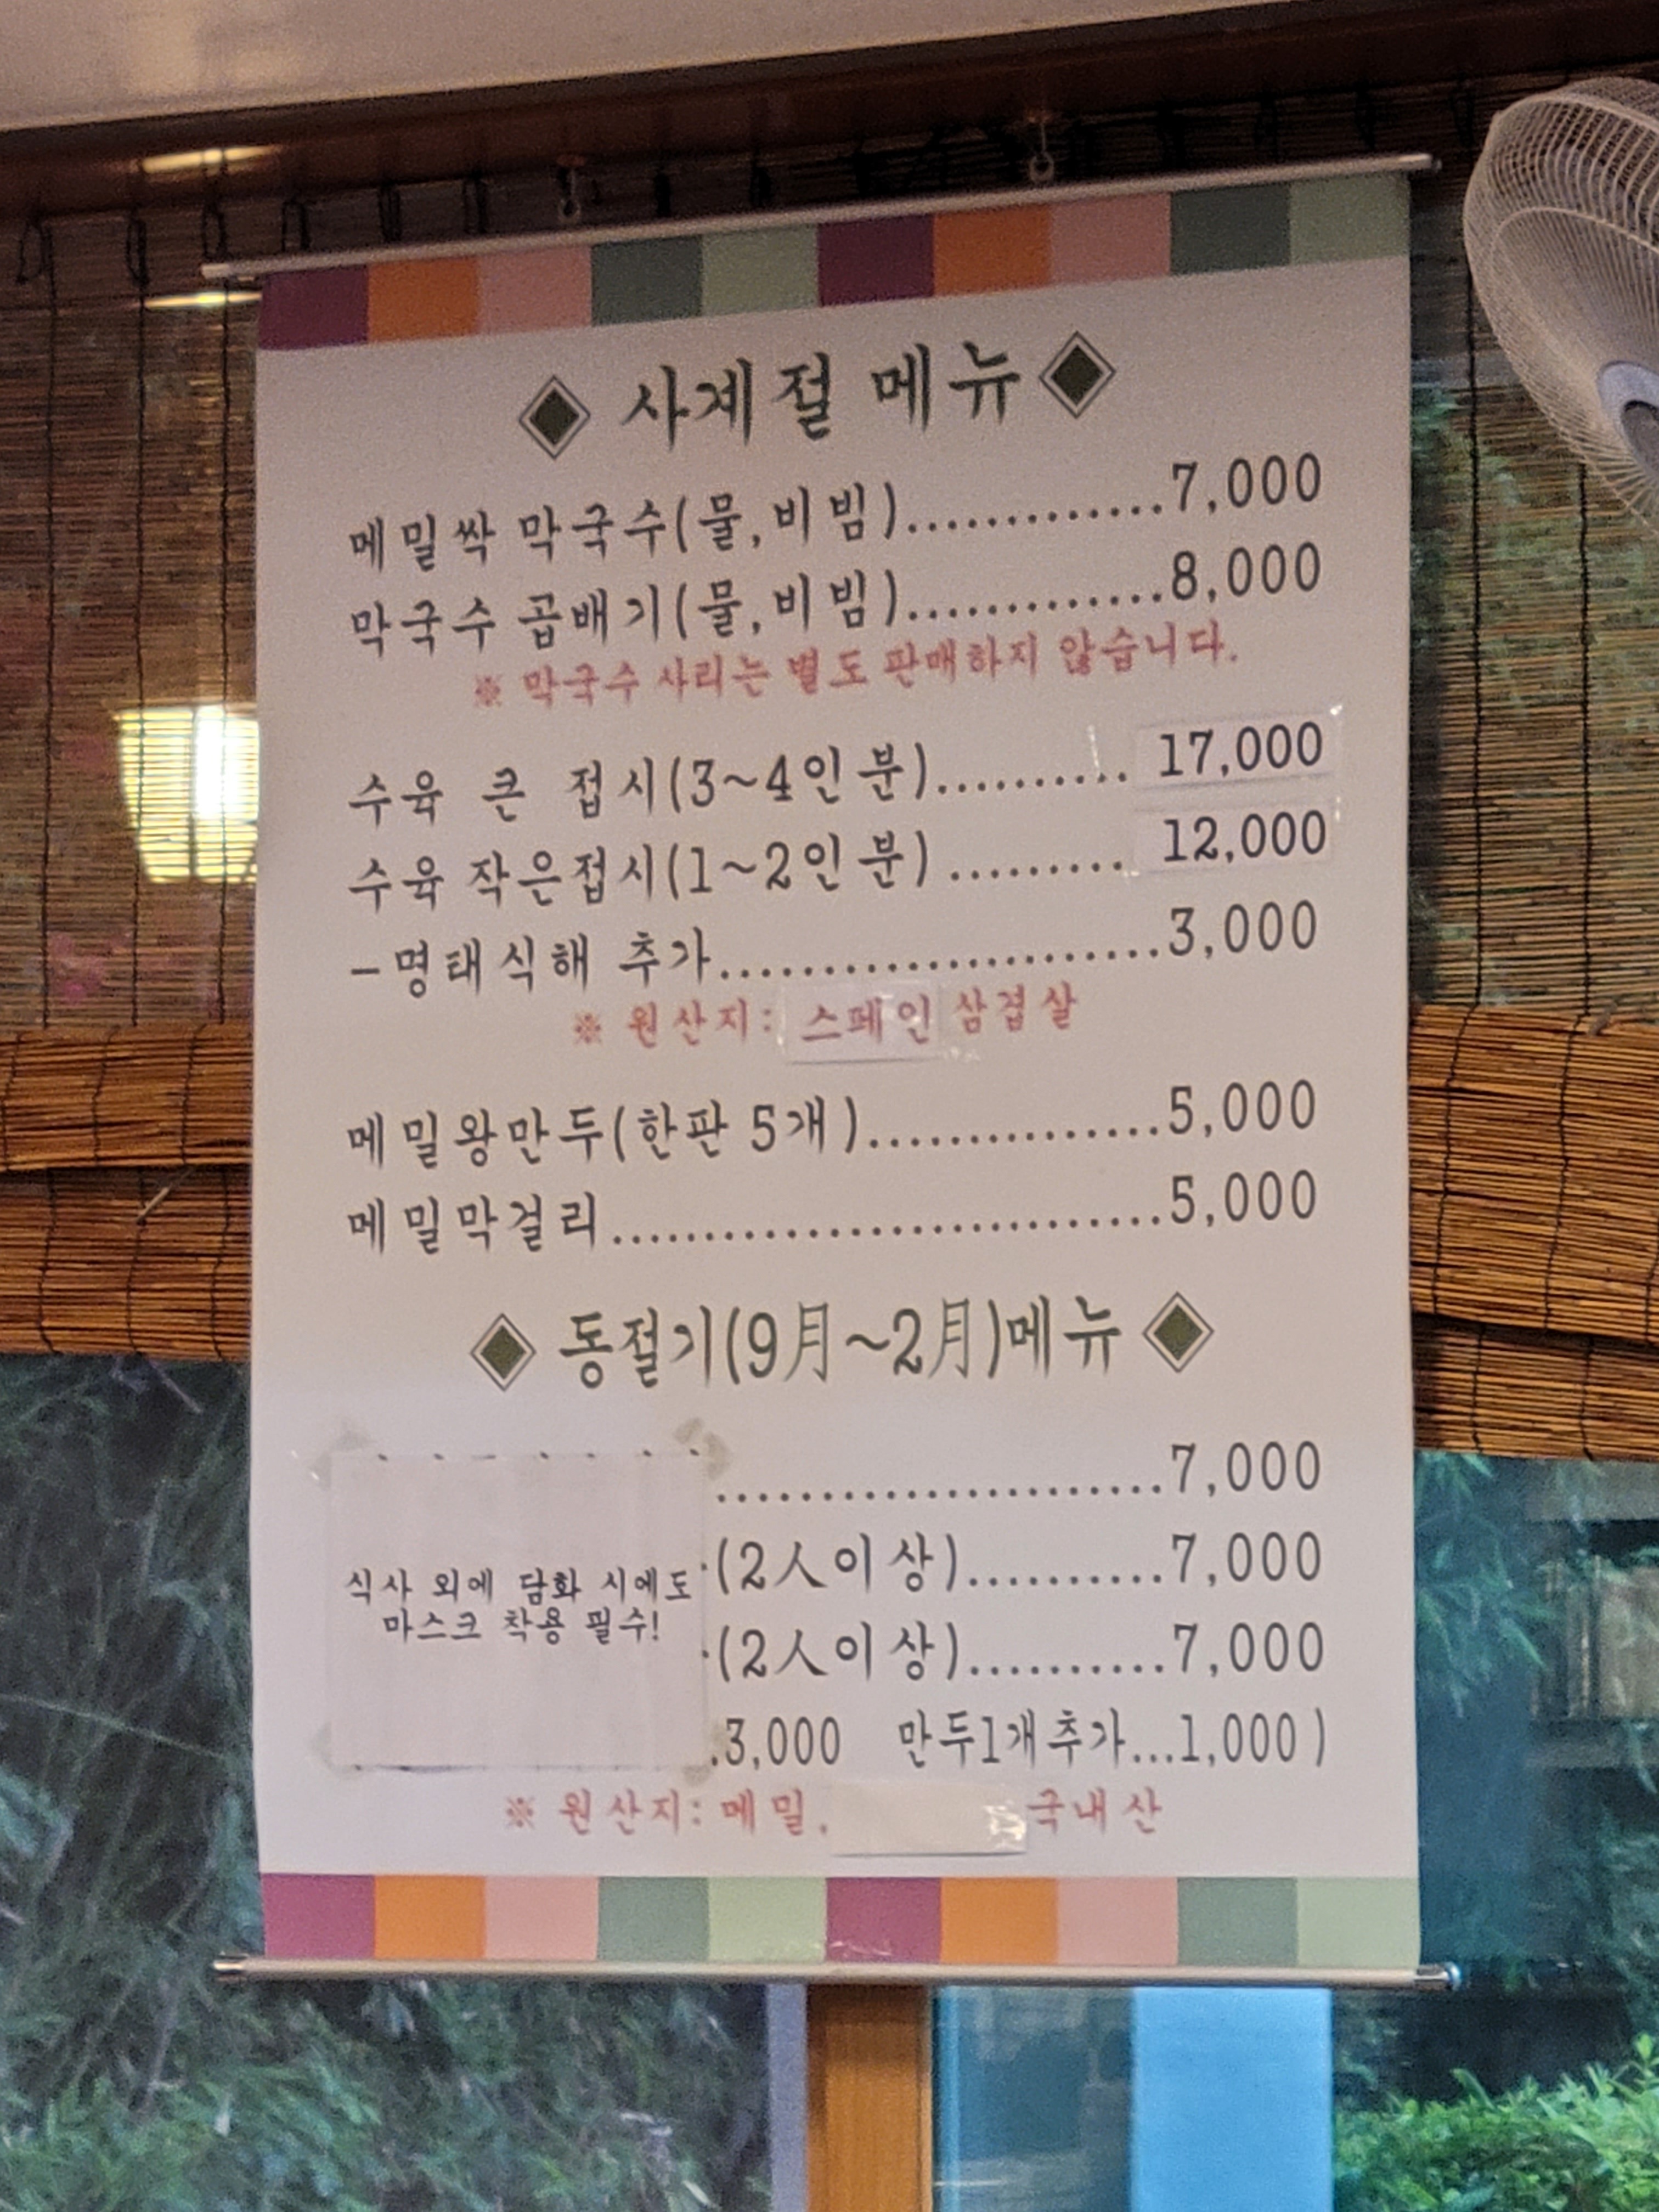 ◈ 사계절 메뉴 ◈
메밀싹 막국수(물,비빔).............7,000
막국수 곱배기(물,비빔).............8,000
※ 막국수 사리는 별도 판매하지 않습니다.
수육 큰 접시(3~4인분).......... 17,000
수육 작은접시(1~2인분) ......... 12,000
-명태식해 추가......................3,000
※ 원산지: 스페인 삼겹살
메밀왕만두(한판 5개)...............5,000
메밀막걸리............................5,000
◈ 동절기(9月~2月)메뉴 ◈
......................7,000
(2人이상)..........7,000
식사 외에 담화 시에도
마스크 착용 필수!
(2人이상)..........7,000
.3,000 만두1개추가...1,000)
※ 원산지: 메밀, 국내산